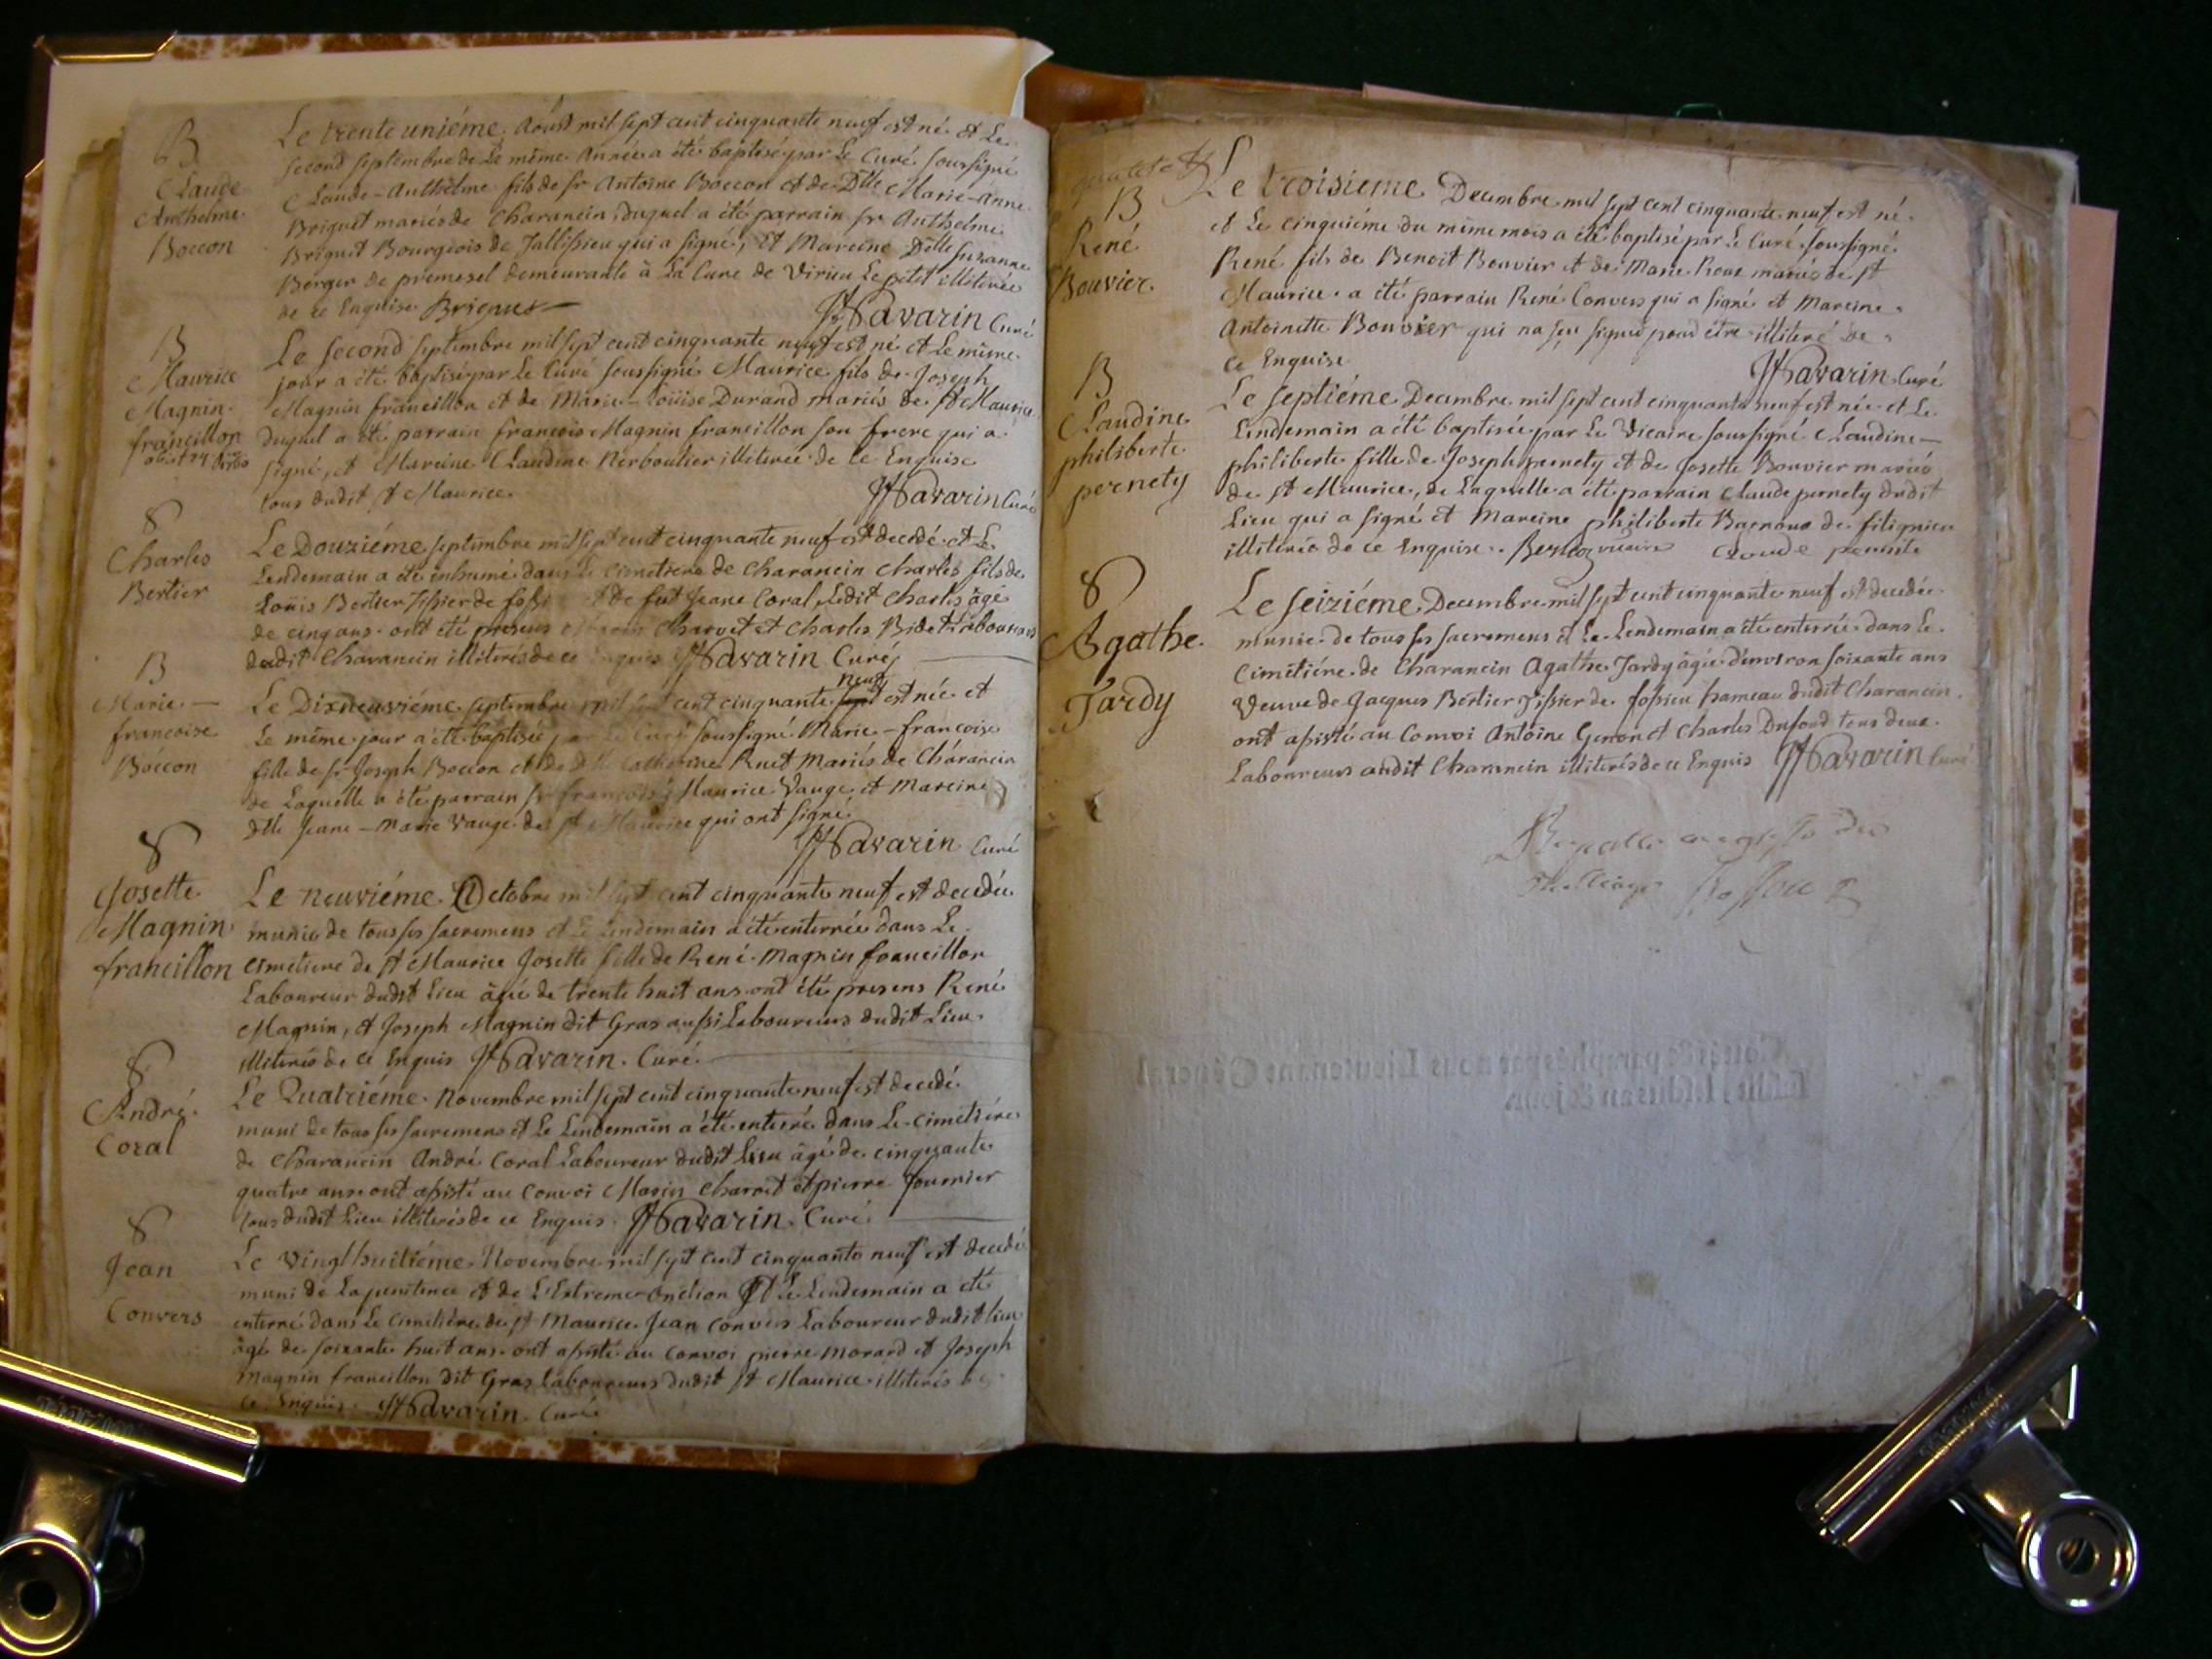 B
Claude
Anthelme
Boccon
Le trente uniéme Aoust mil sept cent cinquante neuf est né et Le
second septembre de Le même Année a été baptisé par Le Curé soussigné
Claude-Anthelme fils de sr Antoine Boccon et de Dlle Marie-Anne
Briguet mariés de Charancin, duquel a été parrain sr Anthelme
Briguet Bourgeois de Tallissieu qui a signé, et Mareine Delle suzanne
Berger de premesel demeurante à La Cure de Virieu Le petit illiterée
de ce Enquise
Savarin Curé
B
Maurice
Magnin
francillon
Le second septembre mil sept cent cinquante neuf est né et Le même
jour a été baptisé par Le Curé soussigné Maurice fils de Joseph
Magnin francillon et de Marie-Loüise Durand mariés de st Maurice
duquel a été parrain francois Magnin francillon son frere qui a
signé, et Mareine Claudine Nerboulier illiterée de ce Enquise
tous dudit st Maurice
Savarin Curé
S
Charles
Bertier
Le Douziéme septembre mil sept cent cinquante neuf est decedé et Le
Lendemain a été inhumé dans Le Cimetiere de Charancin Charles fils de
Loüis Bertier Tissier de et de fut Jeane Coral Ledit Charles âgé
de cinq ans ont été presens Charvet et Charles Bidet Laboureurs
dudit Charancin illiterés de ce Enquis Savarin Curé
B
Marie-
francoise
Boccon
Le Dixneuviéme septembre mil sept cent cinquante sept neuf est née et
Le même jour a été baptisée par Le Curé soussigné Marie-francoise
fille de sr Joseph Boccon et de Dlle Catherine Ruet Mariés de Charancin
de Laquelle a été parrain sr francois Maurice Vauge et Mareine
dlle Jeane-Marie Vauge de st Maurice qui ont signé
Savarin Curé
S
Josette
Magnin
francillon
Le neuviéme Octobre mil sept cent cinquante neuf est decedée
munie de tous ses sacremens et Le Lendemain a été enterrée dans Le
Cimetiere de st Maurice Josette fille de René Magnin francillon
Laboureur dudit Lieu âgée de trente huit ans ont été presens René
Magnin, et Joseph Magnin dit Gras aussi Laboureurs dudit Lieu
illiterés de ce Enquis Savarin Curé
S
André
Coral
Le Quatriéme Novembre mil sept cent cinquante neuf est decedé
muni de tous ses sacremens et Le Lendemain a été enterré dans Le cimetiére
de Charancin André Coral Laboureur dudit Lieu âgé de cinquante
quatre ans ont assisté au Convoi Marin Charvet et pierre fournier
tous dudit Lieu illiterés de ce Enquis Savarin Curé
S
Jean
Convers
Le Vingt huitiéme Novembre mil sept cent cinquante neuf est decedé
muni de La penitence et de L'Extreme-onction Et Le Lendemain a été
enterré dans Le Cimetiére de st Maurice Jean Convers Laboureur dudit Lieu
âgé de soixante huit ans ont assisté au Convoi pierre Morard et Joseph
Magnin francillon dit Gras Laboureurs dudit st Maurice illiterés de
ce Enquis Savarin Curé
B
René
Bouvier
Le troisieme Decembre mil sept cent cinquante neuf est né
et Le cinquiéme du même mois a été baptisé par Le Curé soussigné
René fils de Benoit Bouvier et de Marie Roux mariés de st
Maurice a été parrain René Convers qui a signé et Mareine
Antoinette Bouvier qui na sçu signer pour être illiteré de
ce Enquise
Savarin Curé
B
Claudine
philiberte
pernety
Le septiéme Decembre mil sept cent cinquante neuf est née et Le
Lendemain a été baptisée par Le Vicaire soussigné Claudine-
philiberte fille de Joseph pernety et de Josette Bouvier mariés
de st Maurice, de Laquelle a été parrain Claude pernety dudit
Lieu qui a signé et Mareine philiberte de
illiterés de ce Enquise vicaire
S
Agathe
Tardy
Le seiziéme Decembre mil sept cent cinquante neuf est decedée
munie de tous ses sacremens et Le Lendemain a été enterrée dans Le
Cimetiére de Charancin Agathe Tardy âgée d'environ soixante ans
Veuve de Jacques Bertier Tissier de fossieu hameau dudit Charancin
ont assisté au Convoi Antoine Genon et Charles Dufour tous deux
Laboureurs audit Charancin illiterés de ce Enquis Savarin Curé